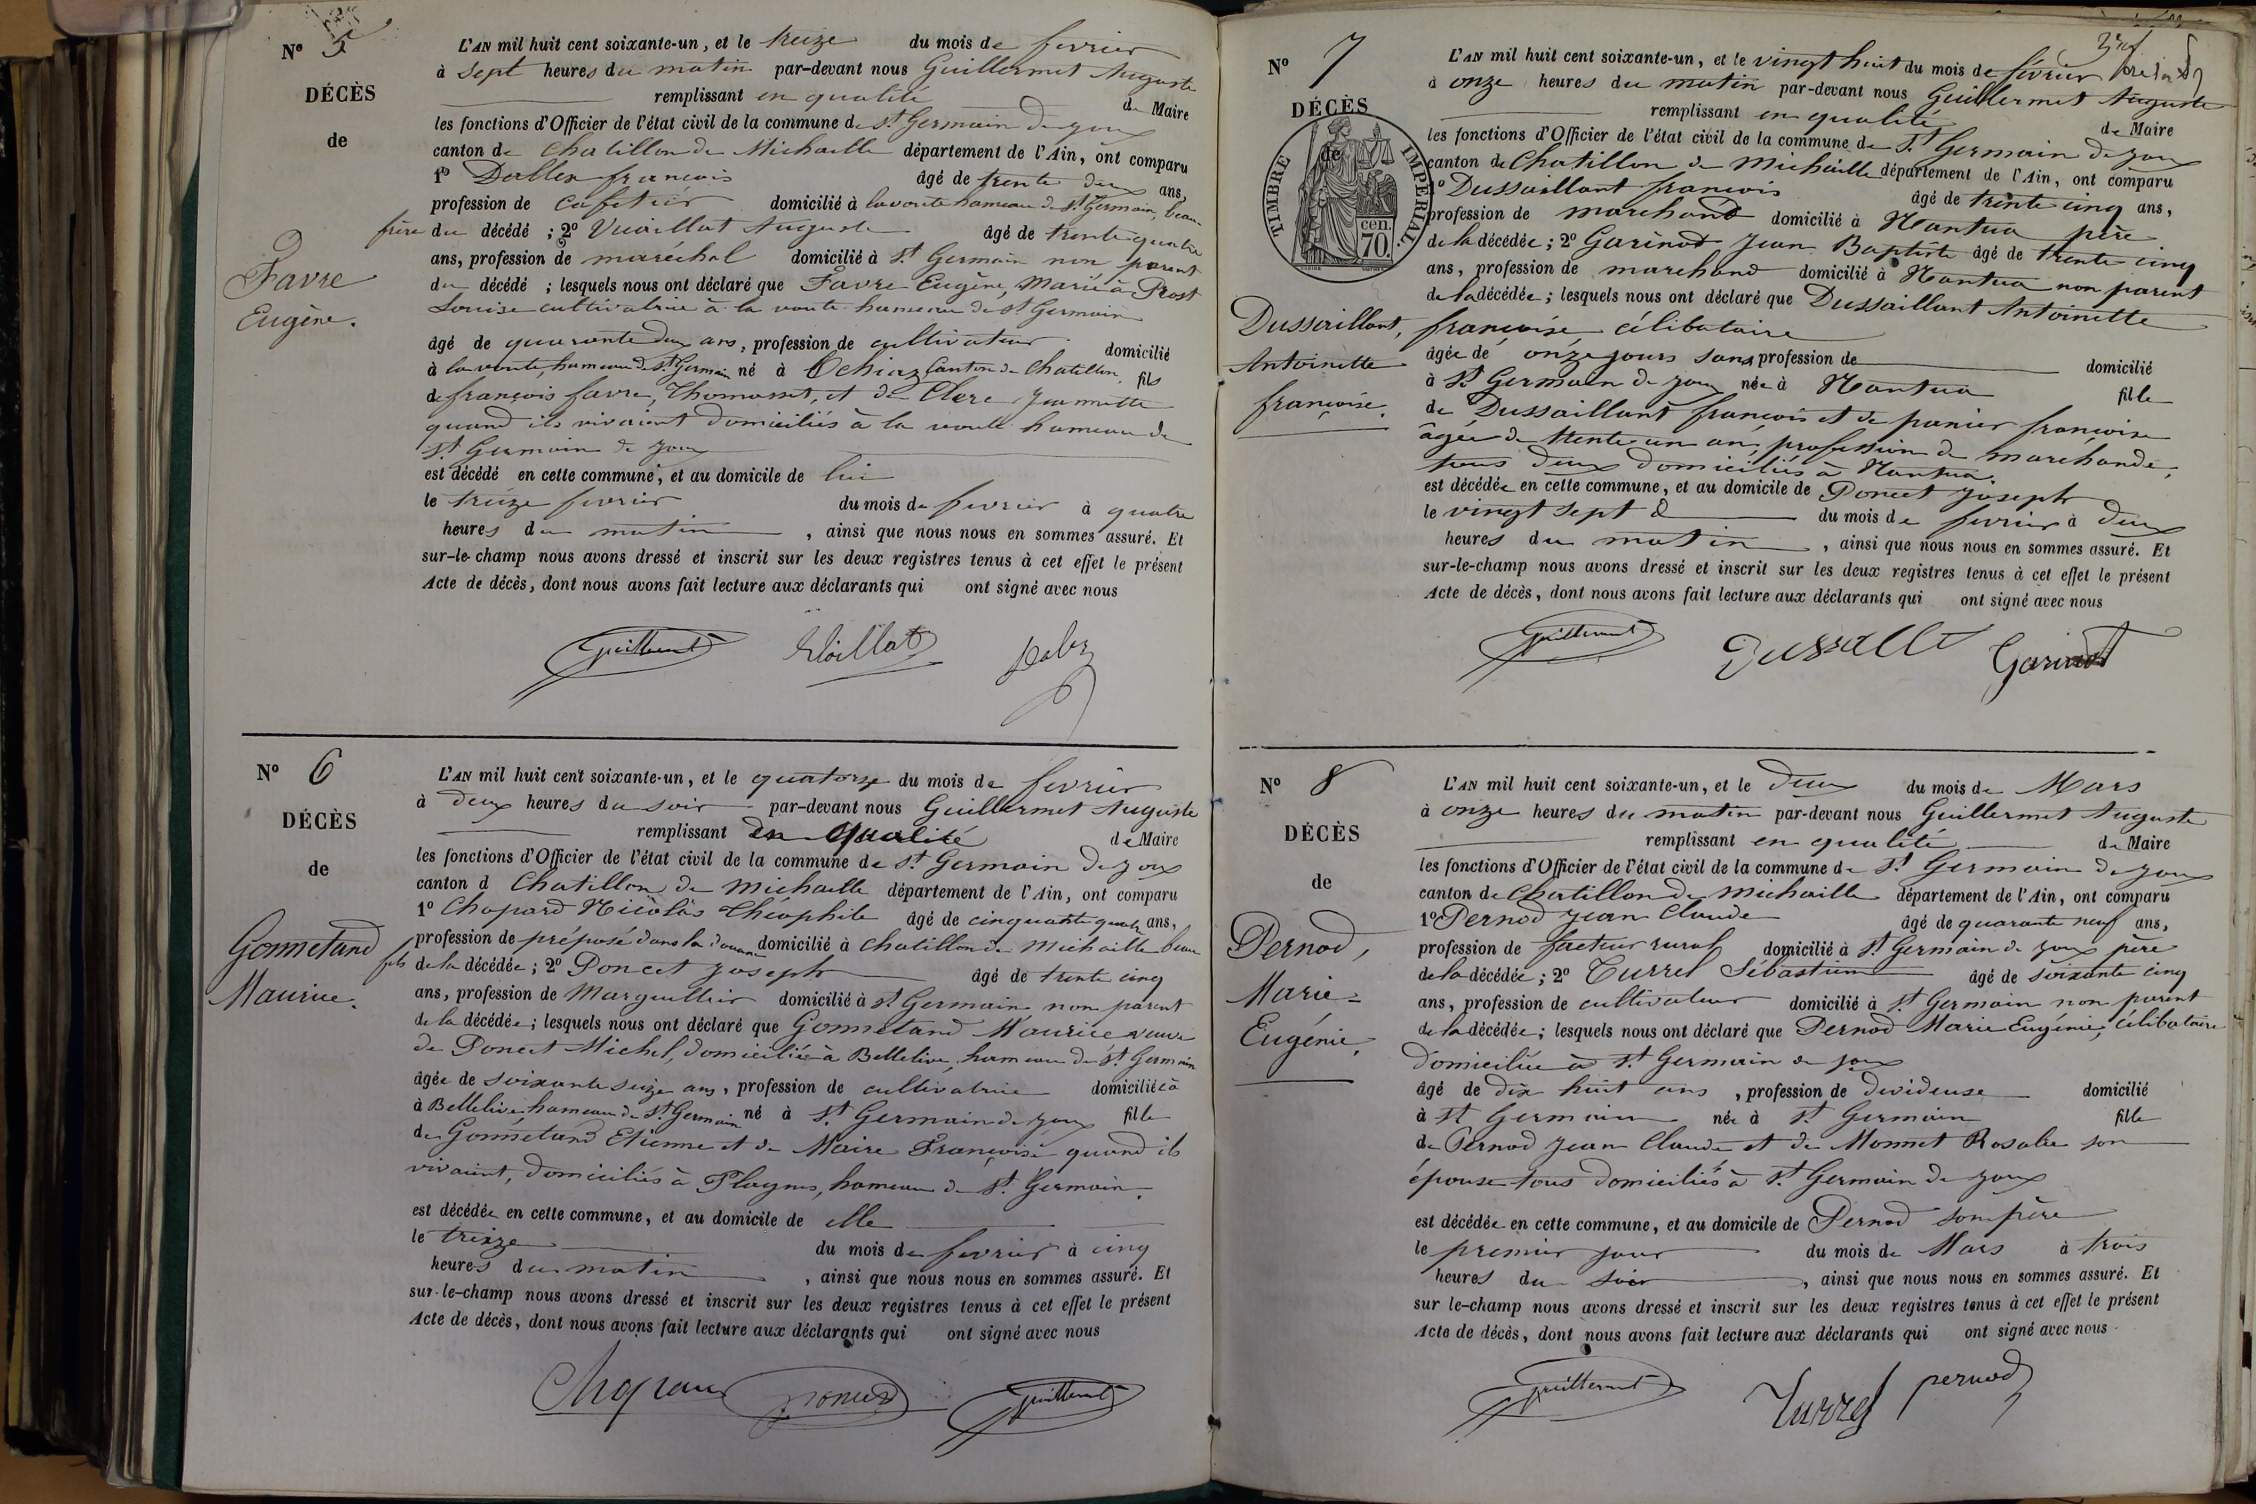 N° 5
DÉCÈS
de
Favre
Eugène.
L'AN mil huit cent soixante-un, et le treize du mois de fevrier
à sept heures du matin par-devant nous Guillermet Auguste
remplissant en qualité de Maire
les fonctions d'Officier de l'état civil de la commune de St Germain de Joux
canton de Chatillon de Michaille département de l'Ain, ont comparu
1° françois âgé de trente deux ans,
profession de cafetier domicilié à lavoute hameau de St Germain, beau
frère du décédé ; 2° Vuaillat Auguste âgé de trente quatre
ans, profession de maréchal domicilié à St Germain non parent
du décédé ; lesquels nous ont déclaré que Favre Eugène, Marié à Prost
Louise cultivatrice à la voute hameau de St Germain
âgé de quarante deux ans, profession de cultivateur domicilié
à la voute, hameau de St Germain né à Ochiaz Canton de Chatillon fils
de françois favre, Thomasset, et de Clerc Jeannette
quand ils vivaient domiciliés à la voute hameau de
St Germain de Joux
est décédé en cette commune, et au domicile de lui
le treize fevrier du mois de fevrier à quatre
heures du matin, ainsi que nous nous en sommes assuré. Et
sur-le-champ nous avons dressé et inscrit sur les deux registres tenus à cet effet le présent
Acte de décès, dont nous avons fait lecture aux déclarants qui ont signé avec nous
Guillermet
N° 6
DÉCÈS
de
Gonnetand
Maurice.
L'AN mil huit cent soixante-un, et le quatorze du mois de fevrier
à deux heures du soir par-devant nous Guillermet Auguste
remplissant en qualité de Maire
les fonctions d'Officier de l'état civil de la commune de St Germain de Joux
canton d Chatillon de michaille département de l'Ain, ont comparu
1° Chapard Nicolas Théophile âgé de cinquante quatre ans,
profession de préposé dans la douane domicilié à chatillon de michaille beau
fils de la décédée ; 2° Poncet Joseph âgé de trente cinq
ans, profession de Marguillier domicilié à St Germain non parent
de la décédée ; lesquels nous ont déclaré que Gonnetand Maurice veuve
de Poncet Michel, domiciliée à Bellelive, hameau de St Germain
âgée de soixante seize ans, profession de cultivatrice domiciliée à
à Bellelive, hameau de St Germain né à St Germain de Joux fille
de Gonnetand Etienne et de Maire Françoise quand ils
vivaient, domiciliés à Plagnes, hameau de St Germain.
est décédée en cette commune, et au domicile de elle
le treize du mois de fevrier à cinq
heures du matin, ainsi que nous nous en sommes assuré. Et
sur-le-champ nous avons dressé et inscrit sur les deux registres tenus à cet effet le présent
Acte de décès, dont nous avons fait lecture aux déclarants qui ont signé avec nous
poncet Guillermet
N° 7
DÉCÈS
de
TIMBRE IMPÉRIAL.
70 cen.
Dussaillant,
Antoinette
françoise.
L'AN mil huit cent soixante-un, et le vingt huit du mois de février
à onze heures du matin par-devant nous Guillermet Auguste
remplissant en qualité de Maire
les fonctions d'Officier de l'état civil de la commune de St Germain de Joux
canton de Chatillon de Michaille département de l'Ain, ont comparu
1° Dussaillant françois âgé de trente cinq ans,
profession de marchand domicilié à Nantua père
de la décédée ; 2° Garinod Jean Baptiste âgé de trente cinq
ans, profession de marchand domicilié à Nantua non parent
de la décédée ; lesquels nous ont déclaré que Dussaillant Antoinette
françoise célibataire
âgée de onze jours sans profession de domicilié
à St Germain de Joux née à Nantua fille
de Dussaillant françois et de panier françoise
âgée de trente un ans, profession de marchande,
tous deux domiciliés à Nantua.
est décédée en cette commune, et au domicile de Poncet Joseph
le vingt sept du mois de fevrier à deux
heures du matin, ainsi que nous nous en sommes assuré. Et
sur-le-champ nous avons dressé et inscrit sur les deux registres tenus à cet effet le présent
Acte de décès, dont nous avons fait lecture aux déclarants qui ont signé avec nous
Guillermet
N° 8
DÉCÈS
de
Pernod,
Marie-
Eugénie.
L'AN mil huit cent soixante-un, et le deux du mois de Mars
à onze heures du matin par-devant nous Guillermet Auguste
remplissant en qualité de Maire
les fonctions d'Officier de l'état civil de la commune de St Germain de Joux
canton de Chatillon de Michaille département de l'Ain, ont comparu
1° Pernod Jean Claude âgé de quarante neuf ans,
profession de facteur rural domicilié à St Germain de Joux père
de la décédée ; 2° Turrel Sébastien âgé de soixante cinq
ans, profession de cultivateur domicilié à St Germain non parent
de la décédée ; lesquels nous ont déclaré que Pernod Marie Eugénie, célibataire
domiciliée à St Germain de Joux
âgé de dix huit ans, profession de devideuse domicilié
à St Germain née à St Germain fille
de Pernod Jean Claude et de Monnet Rosalie son
épouse tous domiciliés à St Germain de Joux
est décédée en cette commune, et au domicile de Pernod son père
le premier jour du mois de Mars à trois
heures du soir, ainsi que nous nous en sommes assuré. Et
sur le-champ nous avons dressé et inscrit sur les deux registres tenus à cet effet le présent
Acte de décès, dont nous avons fait lecture aux déclarants qui ont signé avec nous
Guillermet Turrel pernod